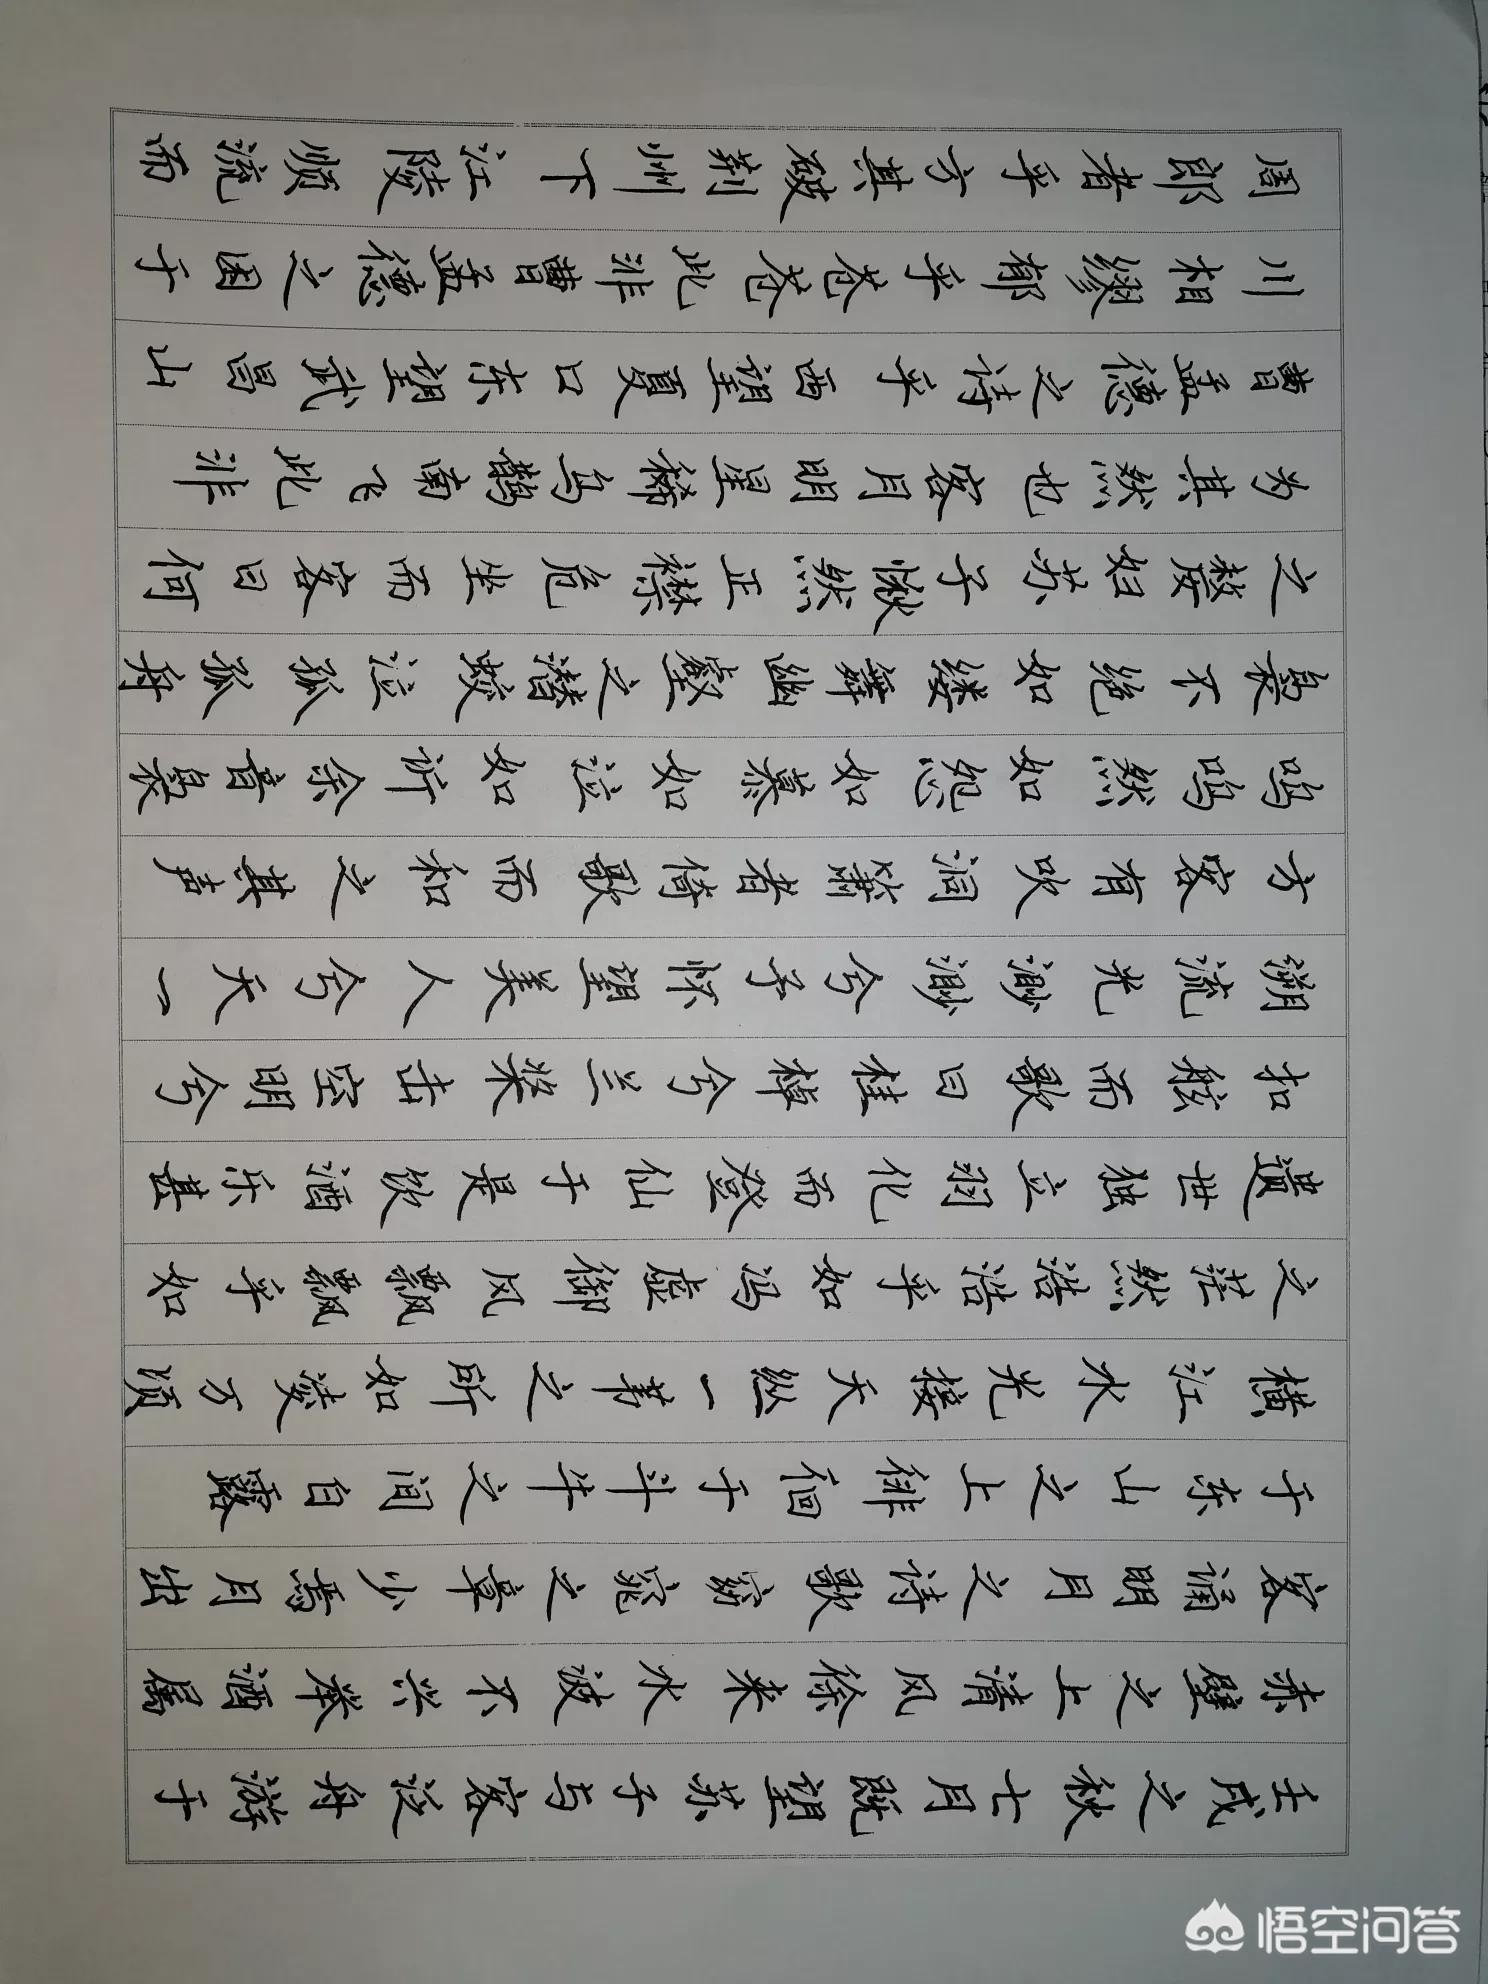 壬戌之秋七月既望苏子与客泛舟游于
赤壁之上清风徐来水波不兴举酒属
客诵明月之诗歌窈窕之章少焉月出
于东山之上徘徊于斗牛之间白露
横江水光接天纵一苇之所如凌万顷
之茫然浩浩乎如冯虚御风飘飘乎如
遗世独立羽化而登仙于是饮酒乐甚
扣舷而歌曰桂棹兮兰桨击空明兮
溯流光渺渺兮予怀望美人兮天一
方客有吹洞箫者倚歌而和之其声
呜呜然如怨如慕如泣如诉余音袅
袅不绝如缕舞幽壑之潜蛟泣孤孤舟
之嫠妇苏子愀然正襟危坐而客曰何
为其然也客月明星稀乌鹊南飞此非
曹孟德之诗乎西望夏口东望武昌山
川相缪郁乎苍苍此非曹孟德之困于
周郎者乎方其破荆州下江陵顺流而
悟空问答